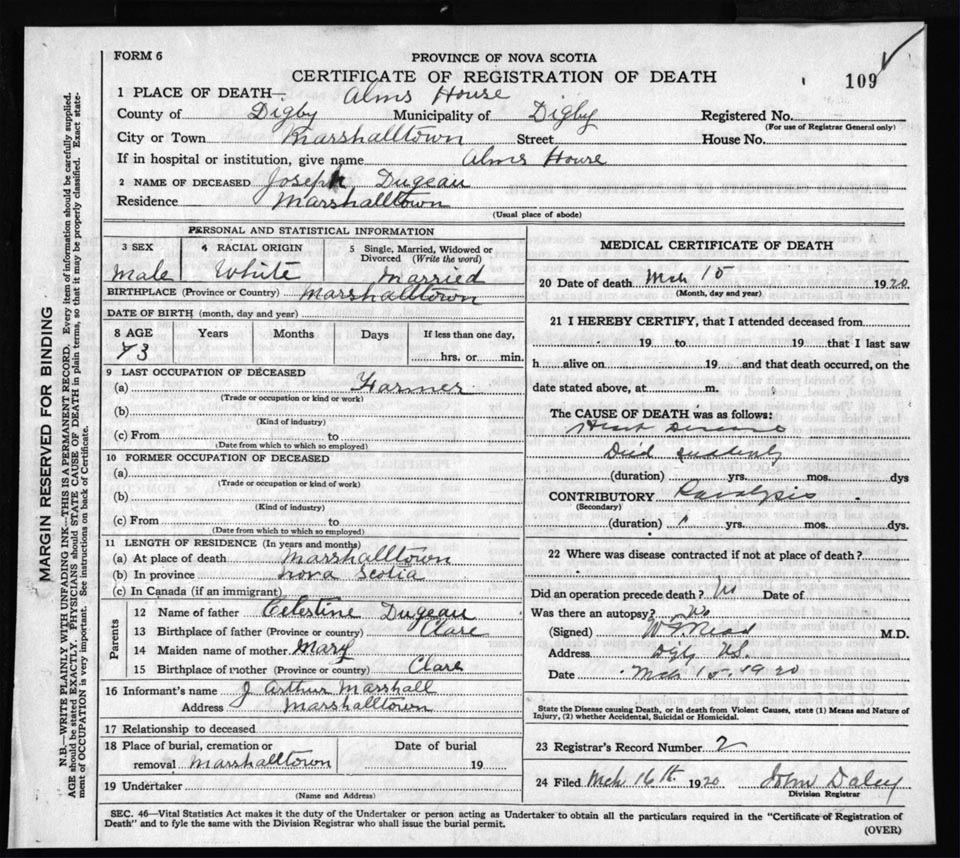 FORM 6
PROVINCE OF NOVA SCOTIA
CERTIFICATE OF REGISTRATION OF DEATH
109
1 PLACE OF DEATH— Alms House
County of Digby Municipality of Digby Registered No.
(For use of Registrar General only)
City or Town Marshalltown Street House No.
If in hospital or institution, give name Alms House
2 NAME OF DECEASED Joseph Dugeau
Residence Marshalltown
(Usual place of abode)
PERSONAL AND STATISTICAL INFORMATION
3 SEX 4 RACIAL ORIGIN 5 Single, Married, Widowed or
Divorced (Write the word)
Male White Married
BIRTHPLACE (Province or Country) Marshalltown
DATE OF BIRTH (month, day and year)
8 AGE Years Months Days If less than one day,
73 hrs. or min.
9 LAST OCCUPATION OF DECEASED
(a) Farmer
(Trade or occupation or kind or work)
(b)
(Kind of industry)
(c) From to
(Date from which to which so employed)
10 FORMER OCCUPATION OF DECEASED
(a)
(Trade or occupation or kind of work)
(b)
(Kind of industry)
(c) From to
(Date from which to which so employed)
11 LENGTH OF RESIDENCE (In years and months)
(a) At place of death Marshalltown
(b) In province Nova Scotia
(c) In Canada (if an immigrant)
Parents
12 Name of father Celestine Dugeau
13 Birthplace of father (Province or country) Clare
14 Maiden name of mother Mary
15 Birthplace of mother (Province or country) Clare
16 Informant's name J Arthur Marshall
Address Marshalltown
17 Relationship to deceased
18 Place of burial, cremation or Date of burial
removal Marshalltown 19
19 Undertaker
(Name and Address)
MEDICAL CERTIFICATE OF DEATH
20 Date of death Mch 15 1920
(Month, day and year)
21 I HEREBY CERTIFY, that I attended deceased from
19 to 19 that I last saw
h alive on 19 and that death occurred, on the
date stated above, at m.
The CAUSE OF DEATH was as follows:
Heart Disease
Died suddenly
(duration) yrs. mos. dys
CONTRIBUTORY Paralysis
(Secondary)
(duration) yrs. mos. dys.
22 Where was disease contracted if not at place of death?
Did an operation precede death? No Date of
Was there an autopsy? No
(Signed) M.D.
Address
Date Mch 15. 1920
State the Disease causing Death, or in death from Violent Causes, state (1) Means and Nature of
Injury, (2) whether Accidental, Suicidal or Homicidal.
23 Registrar's Record Number 2
24 Filed Mch 16th 1920 John Daley
Division Registrar
SEC. 46—Vital Statistics Act makes it the duty of the Undertaker or person acting as Undertaker to obtain all the particulars required in the "Certificate of Registration of
Death" and to fyle the same with the Division Registrar who shall issue the burial permit.
(OVER)
MARGIN RESERVED FOR BINDING
N.B.—WRITE PLAINLY WITH UNFADING INK—THIS IS A PERMANENT RECORD. Every item of information should be carefully supplied.
AGE should be stated EXACTLY. PHYSICIANS should STATE CAUSE OF DEATH in plain terms, so that it may be properly classified. Exact state-
ment of OCCUPATION is very important. See instructions on back of Certificate.